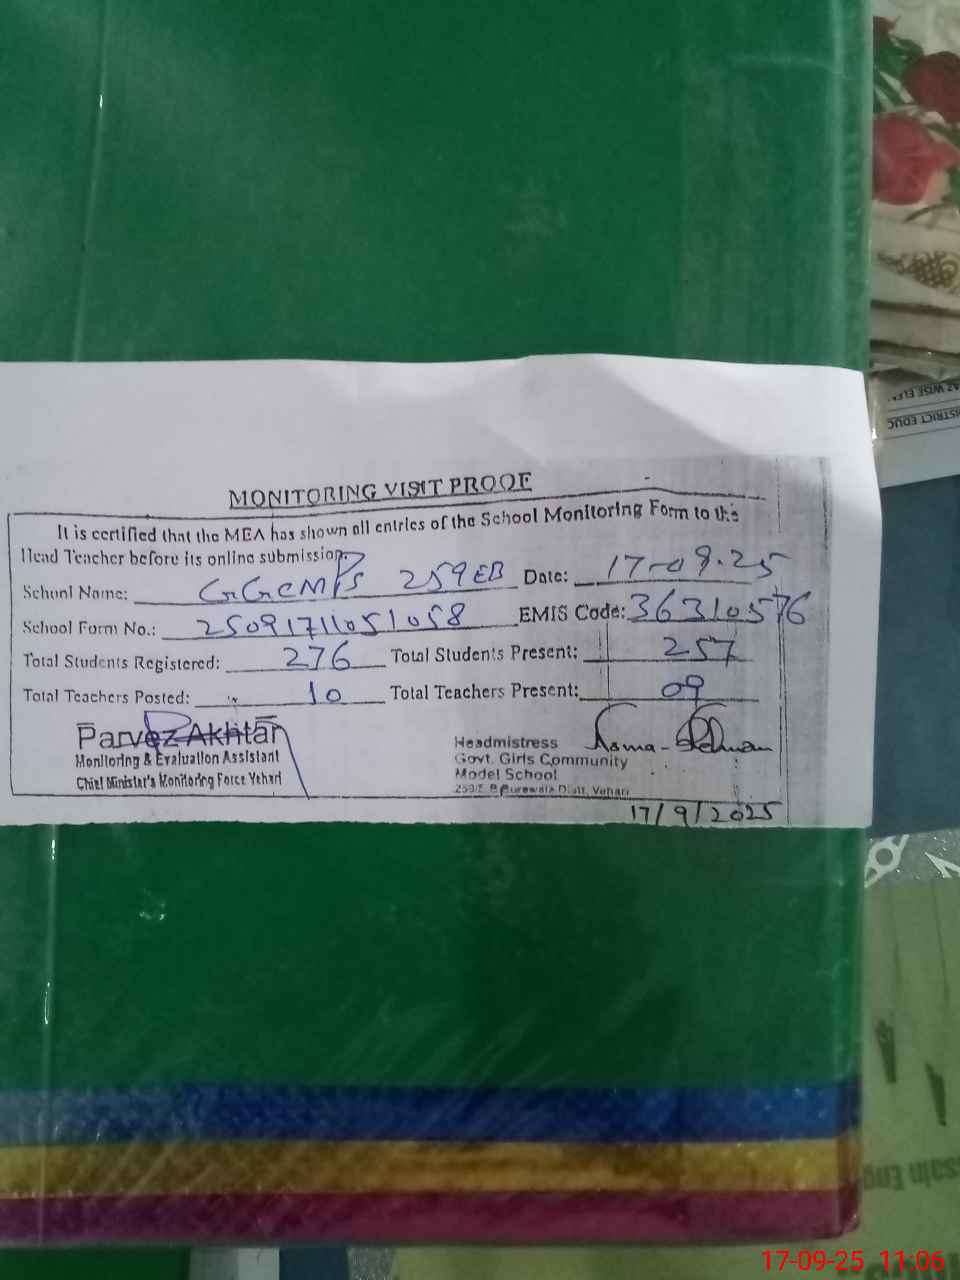 MONITORING VISIT PROOF
It is certified that the MEA has shown all entries of the School Monitoring Form to the
Head Teacher before its online submission.
School Name: GGCMPS 259EB Date: 17-09-25
School Form No.: 25091711051058 EMIS Code: 36310576
Total Students Registered: 276 Total Students Present: 257
Total Teachers Posted: 10 Total Teachers Present: 09
Parvez Akhtar
Monitoring & Evaluation Assistant
Chief Minister's Monitoring Force Vehari
Headmistress
Govt. Girls Community
Model School
259/E.B Burewala Distt. Vehari
17/9/2025
DISTRICT EDUC
17-09-25 11:06